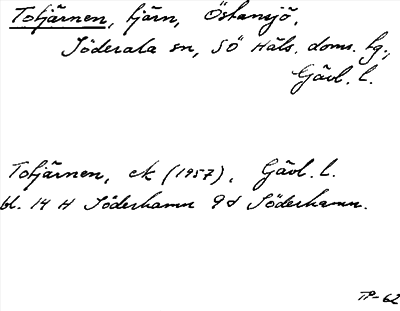 Totjärnen, tjärn, Östansjö,
Söderala sn, SÖ Häls. doms. tg.,
Gävl. l.
Totjärnen, ek (1957), Gävl. l.
bl. 14 H Söderhamn 9d Söderhamn.
TP-62